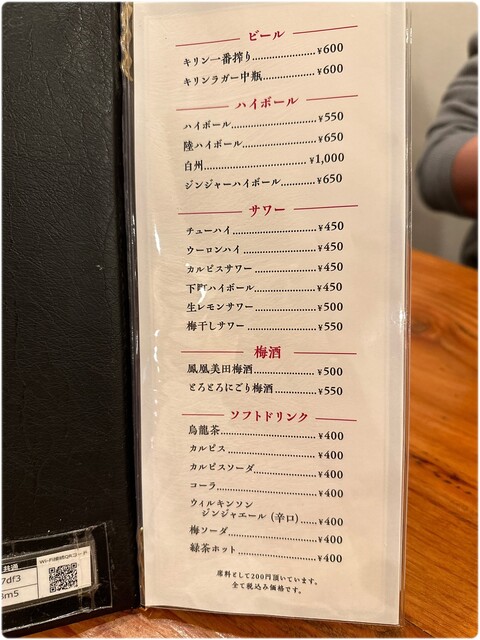 ビール
キリン一番搾り ¥600
キリンラガー中瓶 ¥600
ハイボール
ハイボール ¥550
陸ハイボール ¥650
白州 ¥1,000
ジンジャーハイボール ¥650
サワー
チューハイ ¥450
ウーロンハイ ¥450
カルピスサワー ¥450
下町ハイボール ¥450
生レモンサワー ¥500
梅干しサワー ¥550
梅酒
鳳凰美田梅酒 ¥500
とろとろにごり梅酒 ¥550
ソフトドリンク
烏龍茶 ¥400
カルピス ¥400
カルピスソーダ ¥400
コーラ ¥400
ウィルキンソン
ジンジャエール (辛口) ¥400
梅ソーダ ¥400
緑茶ホット ¥400
席料として200円頂いています。
全て税込み価格です。
共通
7df3
3m5